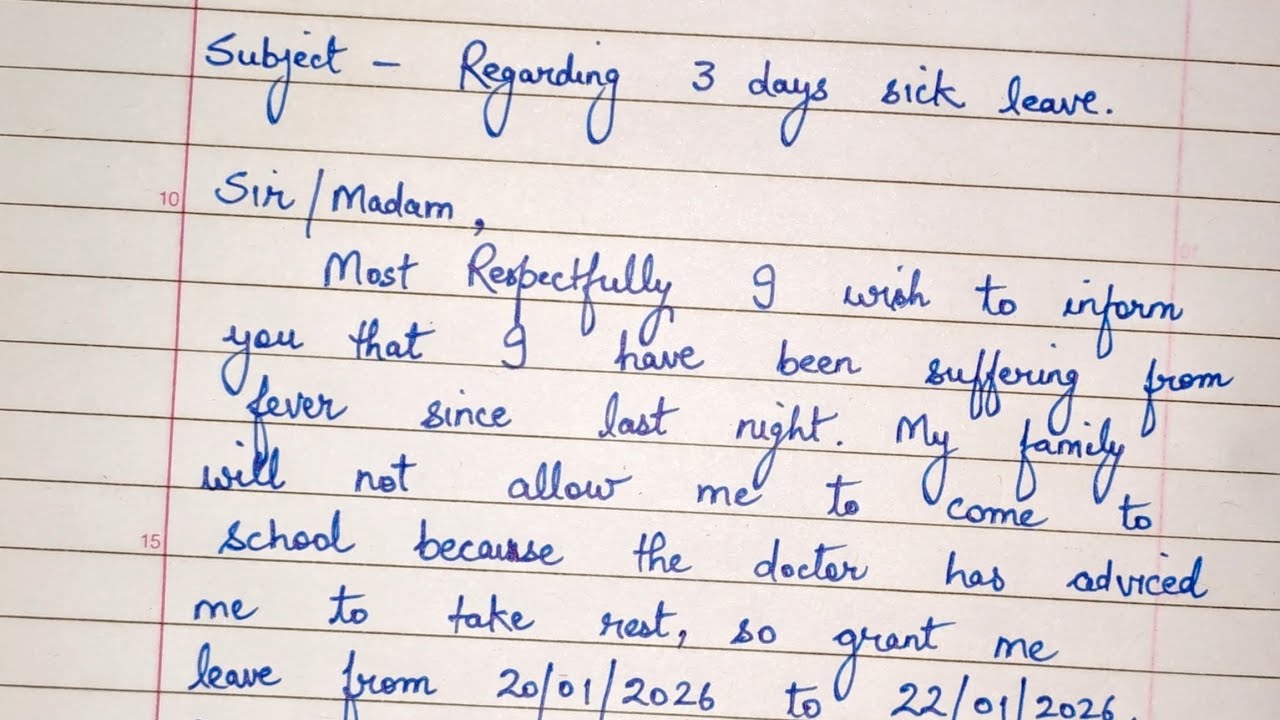 Subject - Regarding 3 days sick leave.
10 Sir/Madam,
Most Respectfully I wish to inform
you that I have been suffering from
fever since last night. My family
will not allow me to come to
15 school because the doctor has adviced
me to take rest, so grant me
leave from 20/01/2026 to 22/01/2026.